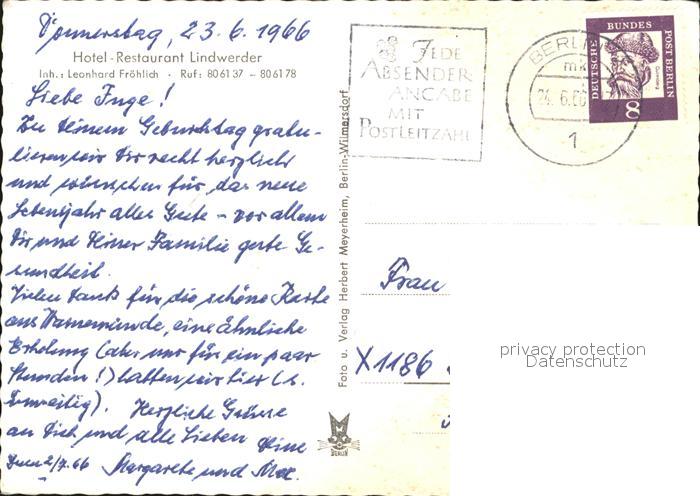 Donnerstag, 23.6.1966
Hotel-Restaurant Lindwerder
Inh.: Leonhard Fröhlich · Ruf: 80 61 37 – 80 61 78
Liebe Inge!
Zu Deinem Geburtstag gratu-
lieren wir Dir recht herzlich
und wünschen für das neue
Lebensjahr alles Gute – vor allem
Dir und Deiner Familie gute Ge-
sundheit.
Vielen Dank für die schöne Karte
aus Warnemünde, eine ähnliche
Erholung (aber nur für ein paar
Stunden!) hatten wir hier (s.
Herzliche Grüsse
an Dich und alle Lieben Deine
2/7.66 Margarete und Max.
Foto u. Verlag Herbert Meyerheim, Berlin-Wilmersdorf
BERLIN
JEDE
ABSENDER-
ANGABE
MIT
POSTLEITZAHL
BERLIN
mk
24.6.66
1
DEUTSCHE BUNDES POST BERLIN
8
Frau
X1186
privacy protection
Datenschutz